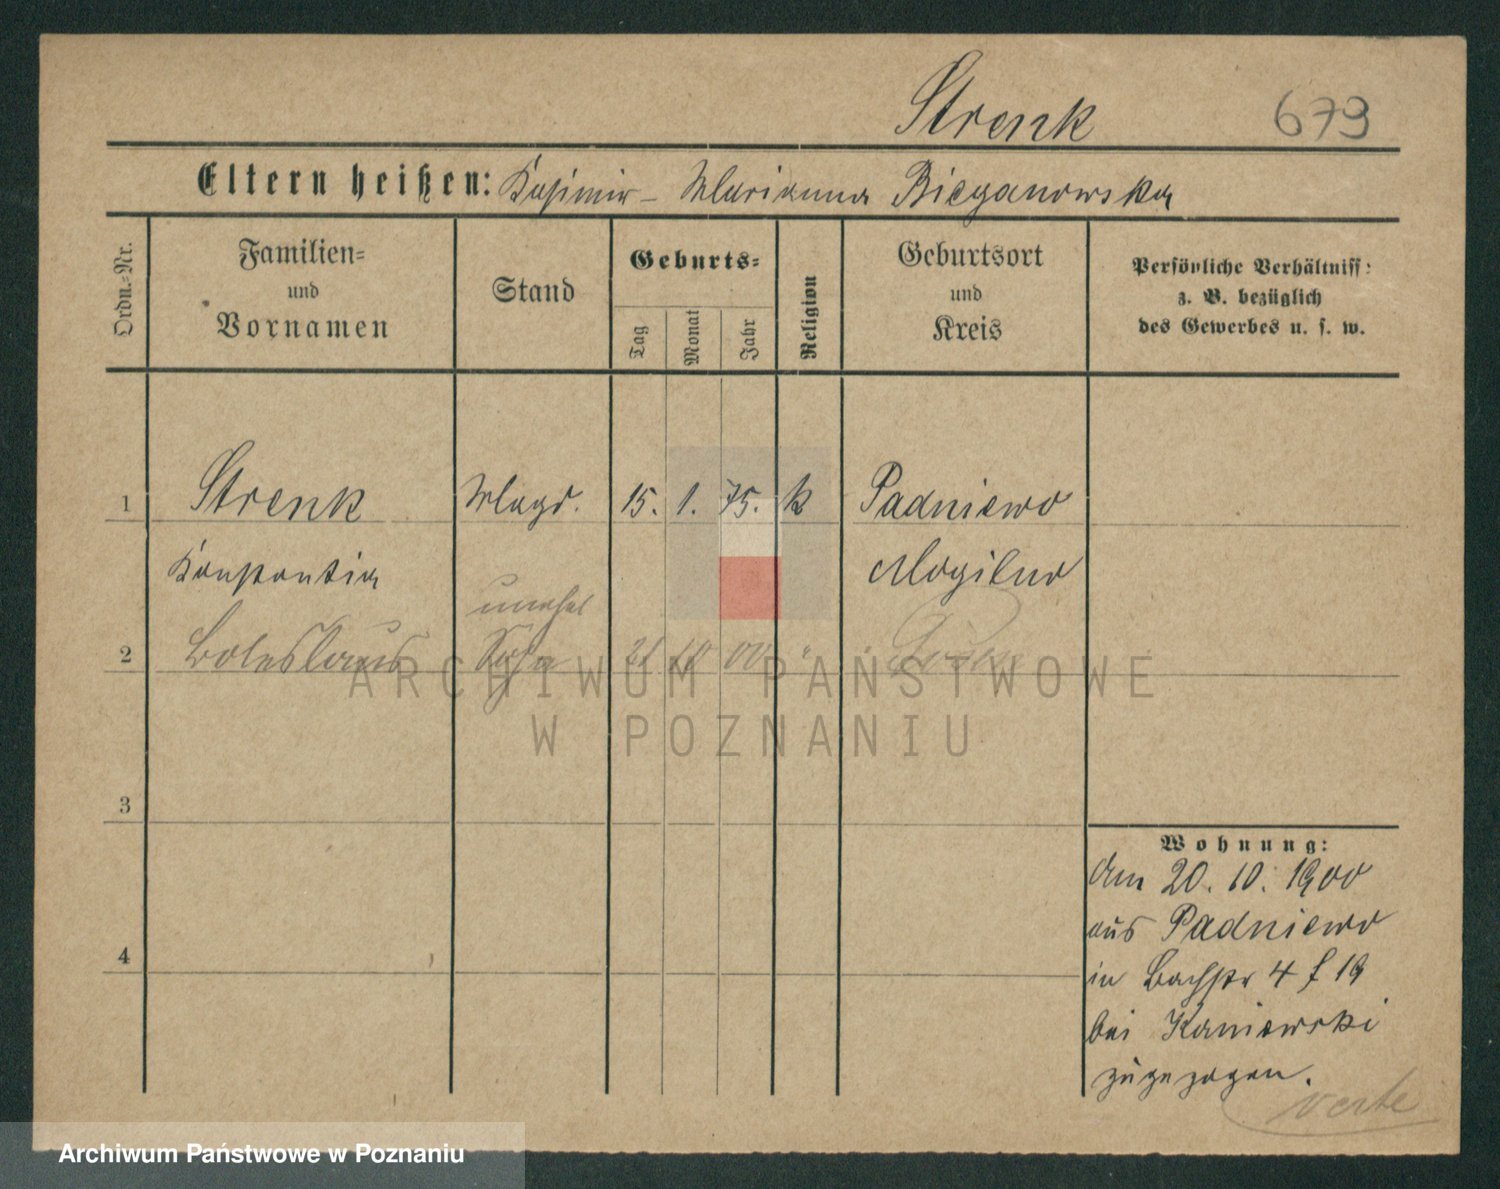 Strenk 679
Eltern heißen: Kasimir - Marianna Bieganowska
Ordn.-Nr.
Familien-
und
Vornamen
Stand
Geburts-
Tag
Monat
Jahr
Religion
Geburtsort
und
Kreis
Persönliche Verhältniss:
z. B. bezüglich
des Gewerbes u. s. w.
1 Strenk Magd. 15. 1. 75. k Padniewo
Konstantia Mogilno
unehel
2 Boleslaus Sohn 21 10 00 " Posen
3
4
Wohnung:
Am 20. 10. 1900
aus Padniewo
in Bachstr 4 f 19
bei Kaniewski
zugezogen.
verte
ARCHIWUM PAŃSTWOWE
W POZNANIU
Archiwum Państwowe w Poznaniu